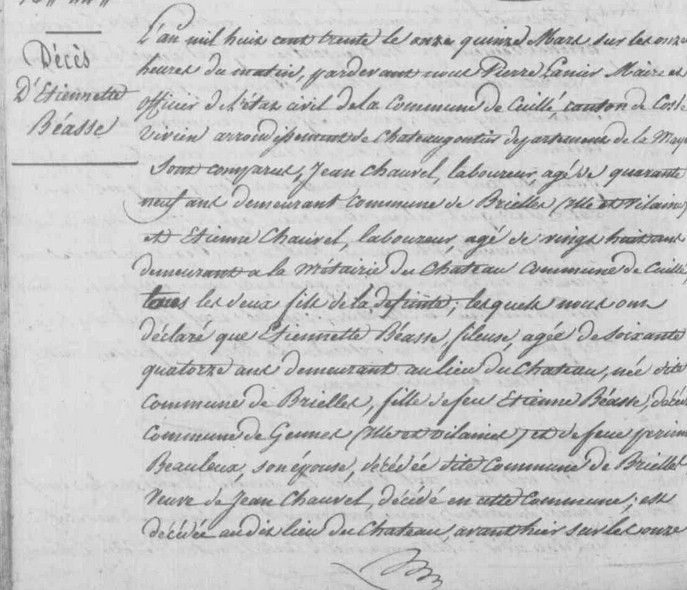 Décès
D'Etiennette
Béasse
L'an mil huit cent trente le onze quinze Mars sur les onze
heures du matin, pardevant nous Pierre Lanier Maire et
officier de l'état civil de la Commune de Cuillé, canton de Cossé
vivien arrondissement de Chateaugontier département de la May
Sont comparus, Jean Chauvel, laboureur, agé de quarante
neuf ans demeurant commune de Brielles (Ille et vilaine)
et Etienne Chauvel, laboureur, agé de vingt huit ans
demeurant a la métairie du Chateau Commune de Cuillé,
tous les deux fils de la defunte; lesquels nous ont
déclaré que Etiennette Béasse, fileuse, agée de soixante
quatorze ans demeurant au lieu du Chateau, née dite
Commune de Brielles, fille de feu Etienne Béasse, décéd
Commune de Gennes (Ille et vilaine) et de feue perrin
Beauleux, son épouse, décédée dite Commune de Brielles
Veuve de Jean Chauvel, décédé en cette Commune; est
décédée audit lieu du Chateau, avant hier sur les onze